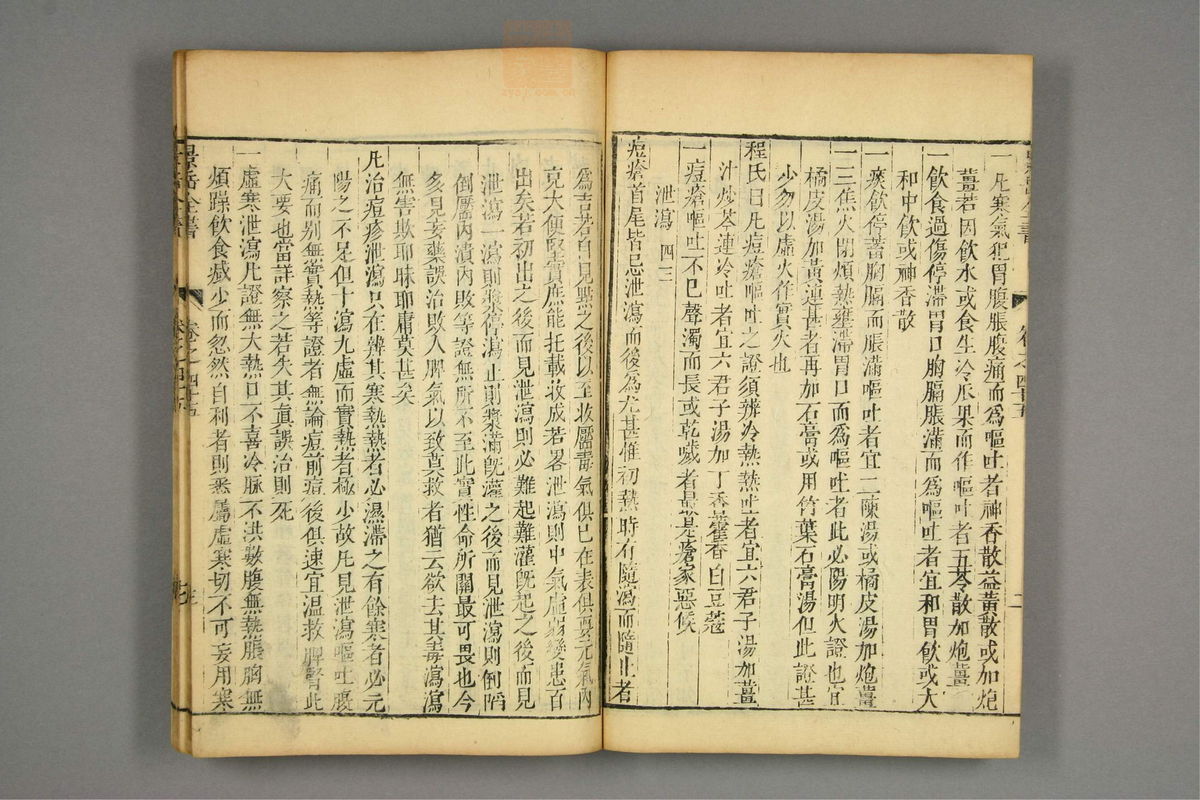 一凡寒氣犯胃腹脹腹痛而為嘔吐者神香散益黃散或加炮
薑若因飲水或食生冷瓜果而作嘔吐者五苓散加炮薑
一飲食過傷停滯胃口胸膈脹滿而為嘔吐者宜和胃飲或大
和中飲或神香散
一痰飲停蓄胸膈而脹滿嘔吐者宜二陳湯或橘皮湯加炮薑
一三焦火閉煩熱壅滯胃口而為嘔吐者此必陽明火證也宜
橘皮湯加黃連甚者再加石膏或用竹葉石膏湯但此證甚
少勿以虛火作實火也
程氏曰凡痘瘡嘔吐之證須辨冷熱熱吐者宜六君子湯加薑
汁炒芩連冷吐者宜六君子湯加丁香藿香白豆蔻
一痘瘡嘔吐不已聲濁而長或乾噦者最是瘡家惡候
泄瀉 四三
痘瘡首尾皆忌泄瀉而後為尤甚惟初熱時有隨瀉而隨止者
為吉若自見點之後以至收靨毒氣俱已在表俱要元氣內
克大便堅實庶能托載收成若畧泄瀉則中氣虛弱變患百
出矣若初出之後而見泄瀉則必難起難灌既起之後而見
泄瀉一瀉則漿停瀉止則漿滿既灌之後而見泄瀉則倒陷
倒靨內潰內敗等證無所不至此實性命所關最可畏也今
多見妄藥誤治敗人脾氣以致莫救者猶云欲去其毒瀉瀉
無害欺耶昧耶庸莫甚矣
凡治痘疹泄瀉只在辨其寒熱熱者必濕滯之有餘寒者必元
陽之不足但十瀉九虛而實熱者極少故凡見泄瀉嘔吐腹
痛而別無實熱等證者無論痘前痘後俱速宜溫救脾腎此
大要也當詳察之若失其眞誤治則死
一虛寒泄瀉凡證無大熱口不喜冷脉不洪數腹無熱脹胸無
煩躁飲食減少而忽然自利者則悉屬虛寒切不可妄用寒
景岳全書
卷之四十五